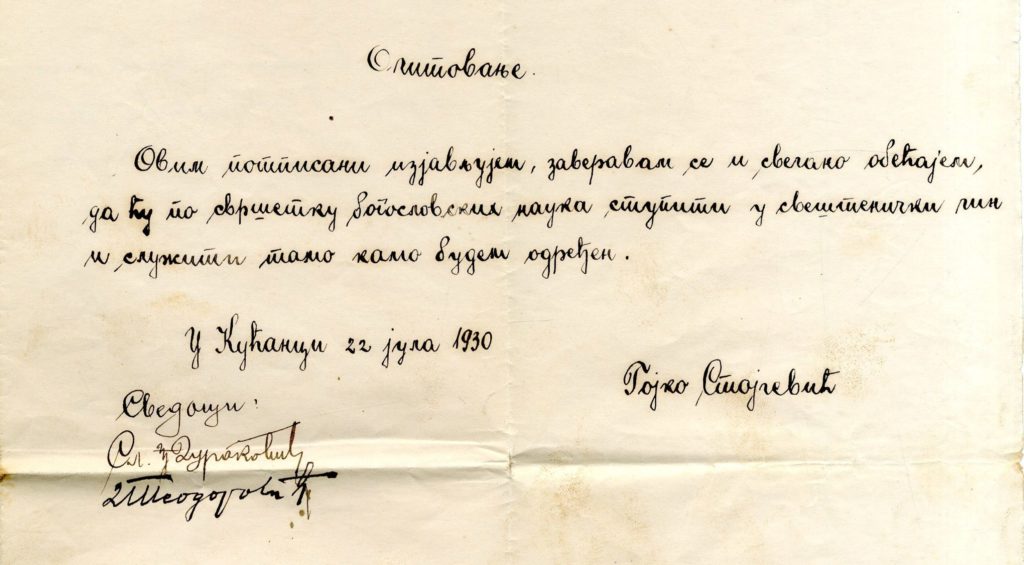 Очитовање.
Овим потписани изјављујем, заверавам се и свечано обећајем,
да ћу по свршетку богословских наука ступити у свештенички чин
и служити тамо камо будем одређен.
У Кућанци 22 јула 1930
Гојко Стојчевић
Сведоци: